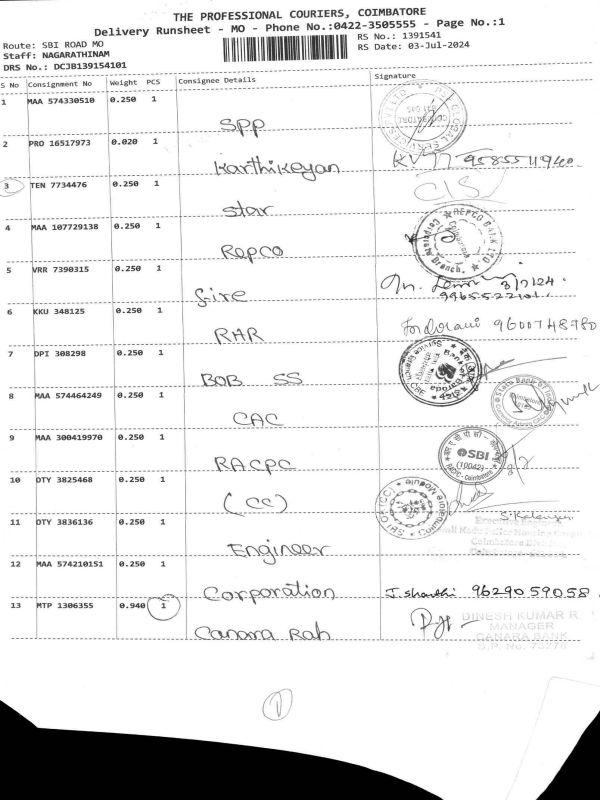 THE PROFESSIONAL COURIERS, COIMBATORE
Delivery Runsheet - MO - Phone No.:0422-3505555 - Page No.:1
Route: SBI ROAD MO
RS No.: 1391541
Staff: NAGARATHINAM
RS Date: 03-Jul-2024
DRS No.: DCJB139154101
S No Consignment No Weight PCS Consignee Details Signature
1 MAA 574330510 0.250 1 SPP
2 PRO 16517973 0.020 1 Karthikeyan
3 TEN 7734476 0.250 1 Star
4 MAA 107729138 0.250 1 Repco
REPCO BANK Ltd
Coimbatore
Branch.
5 VRR 7390315 0.250 1 fire
3/7/24.
9965522101.
6 KKU 348125 0.250 1 RHR
9600748780
7 DPI 308298 0.250 1 BOB SS
8 MAA 574464249 0.250 1 CAC
9 MAA 300419970 0.250 1 RACPC
SBI
(10042)
RACPC - Coimbatore
10 OTY 3825468 0.250 1 (CC)
11 OTY 3836136 0.250 1 Engineer
12 MAA 574210151 0.250 1 Corporation J. Shanthi 9629059058
13 MTP 1306355 0.940 1 Canara Rah
DINESH KUMAR R
MANAGER
CANARA BANK
S.P. No. 73276
1